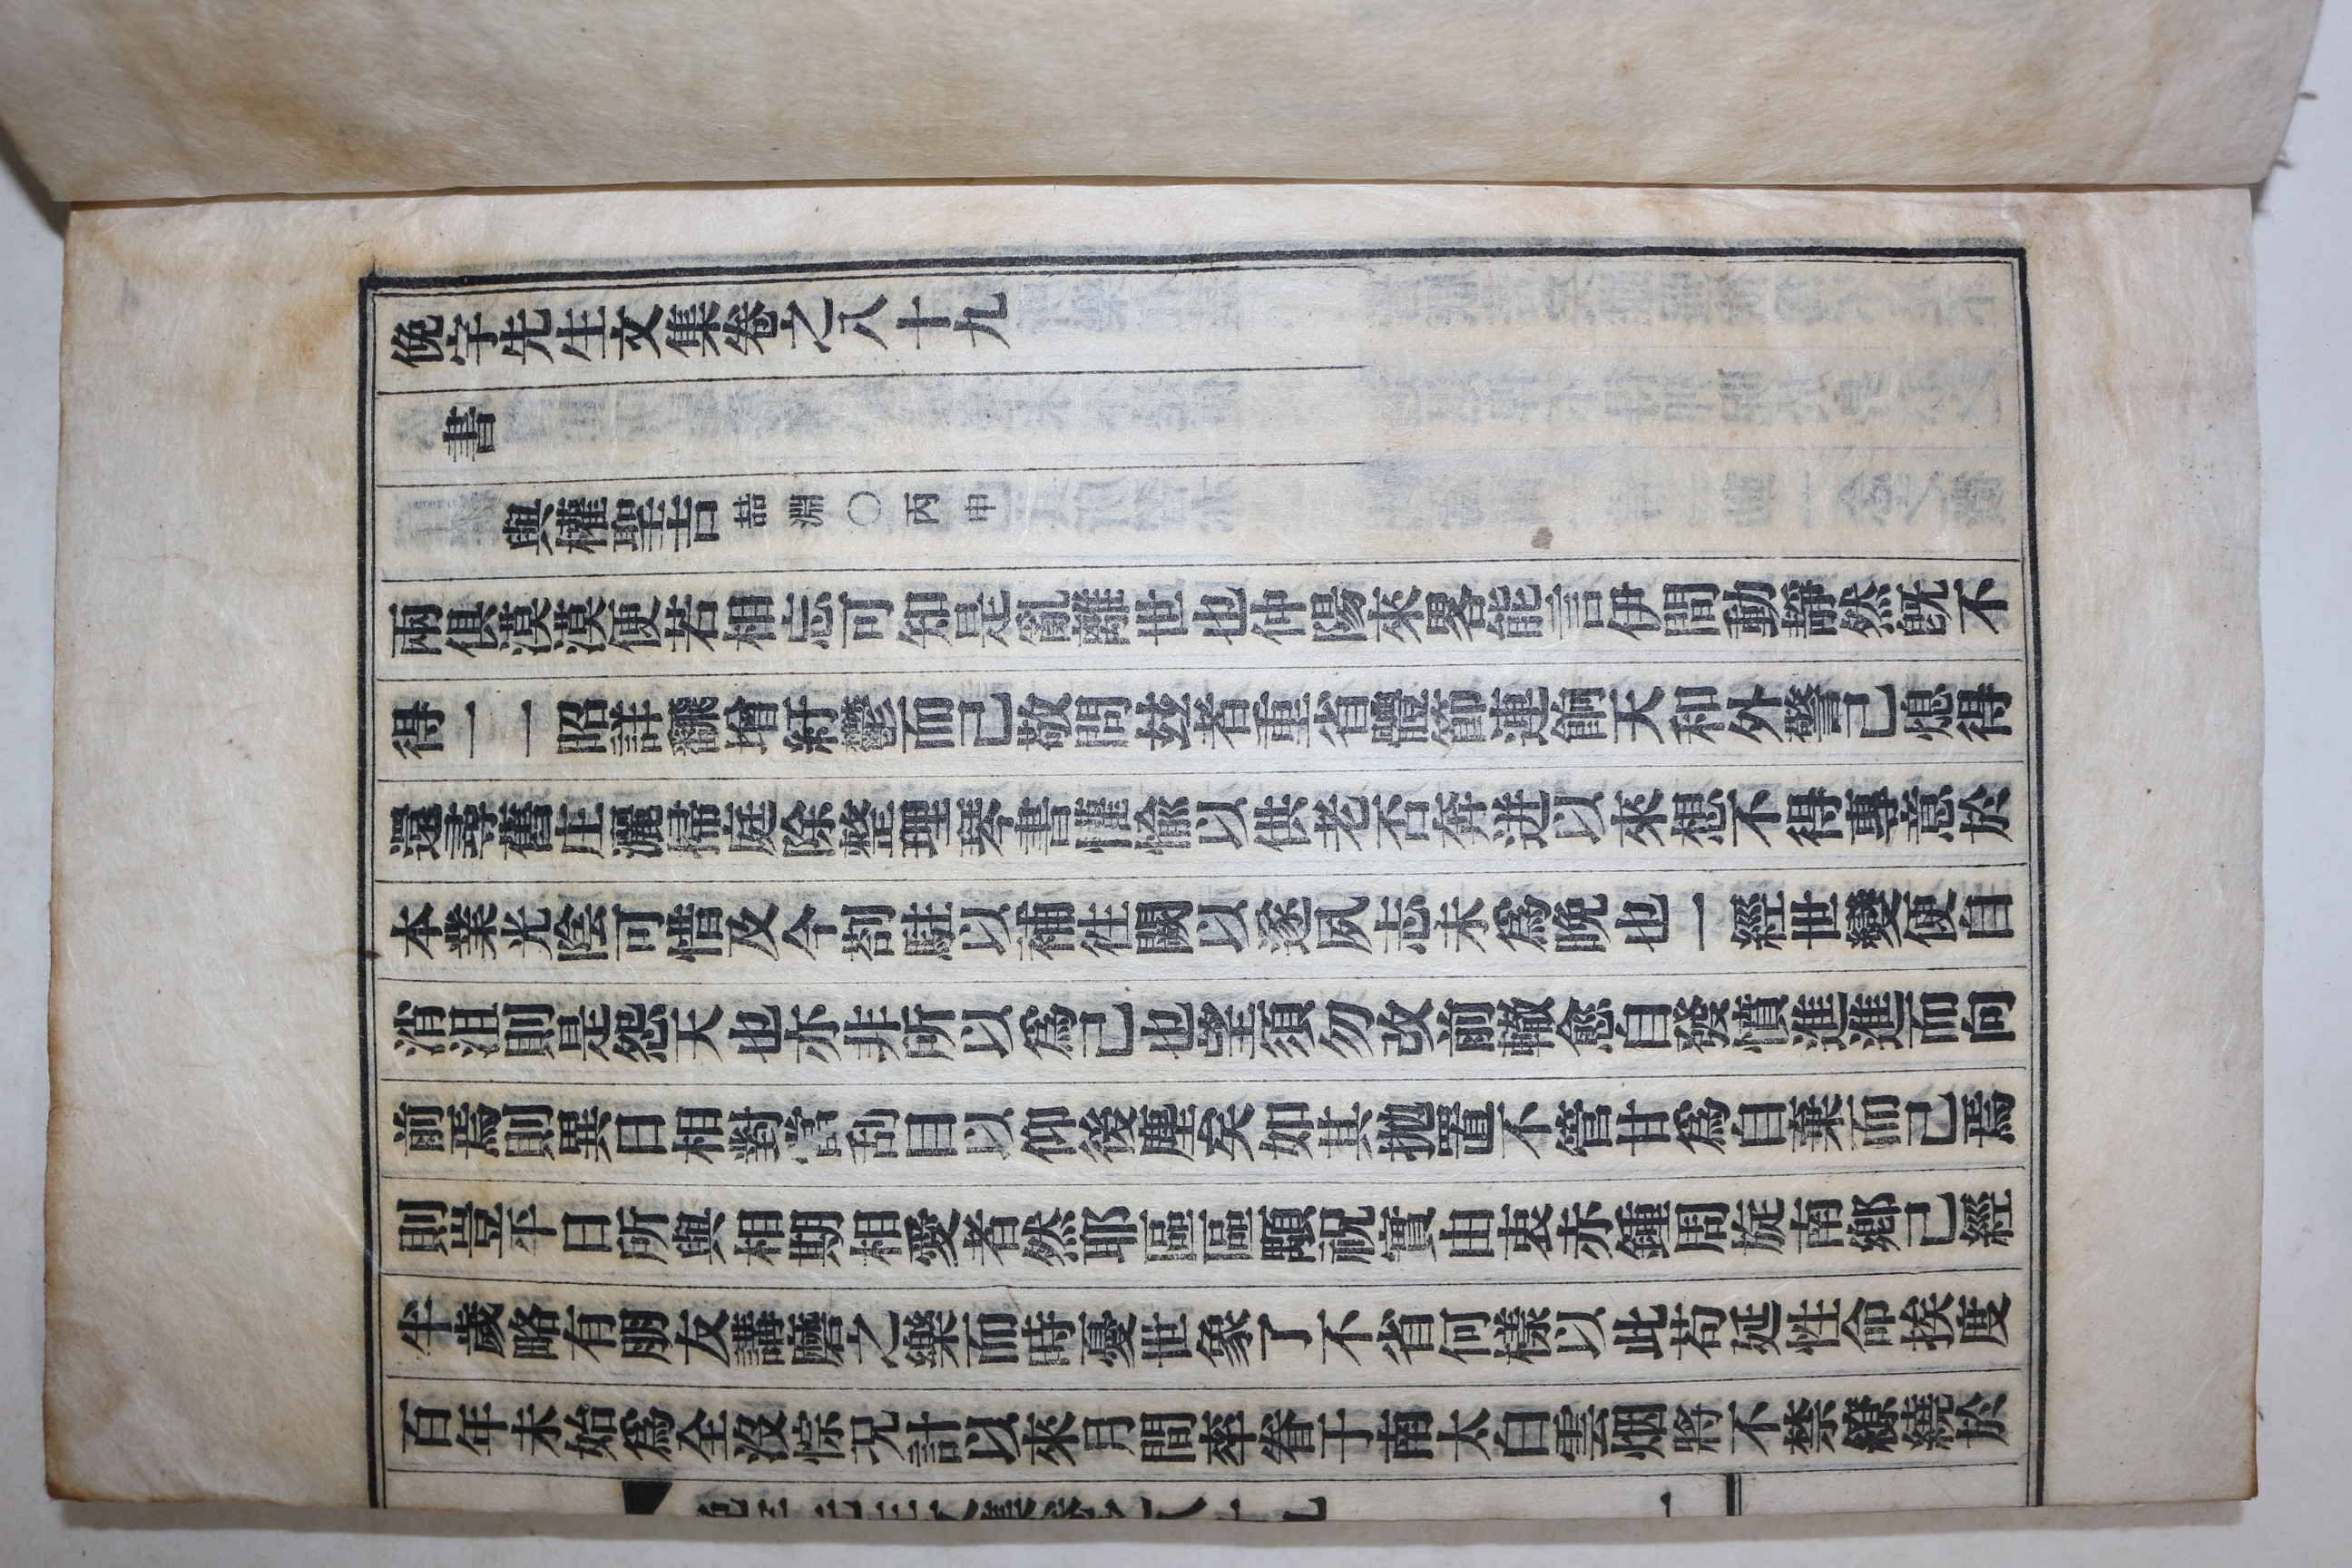 俛宇先生文集卷之八十九
書
與權聖吉喆淵○丙申
兩俱漠漠便若相忘可知是亂離世也仲陽來畧能言伊間動靜然旣不
得一一昭詳飜增紆鬱而已敬問玆者重省體節連餉天和外警已熄得
還尋舊庄灑掃庭除整理琴書懽愉以供老否奔迸以來想不得專意於
本業光陰可惜及今剳駐以補徃闕以遂夙志未爲晚也一經世變便自
消沮則是怨天也亦非所以爲己也望須勿改前轍愈自發憤進進而向
前焉則異日相對當刮目以仰後塵矣如其抛置不管甘爲自棄而已焉
則豈平日所與相期相愛者然耶區區顒祝實由衷赤鍾周旋南鄕已經
半歲略有朋友講磨之樂而時憂世象了不省何樣以此苟延性命挨度
百年未始爲全沒悰况計以來月間率眷于南太白雲烟將不禁繚繞於
俛宇先生文集卷之八十九 一